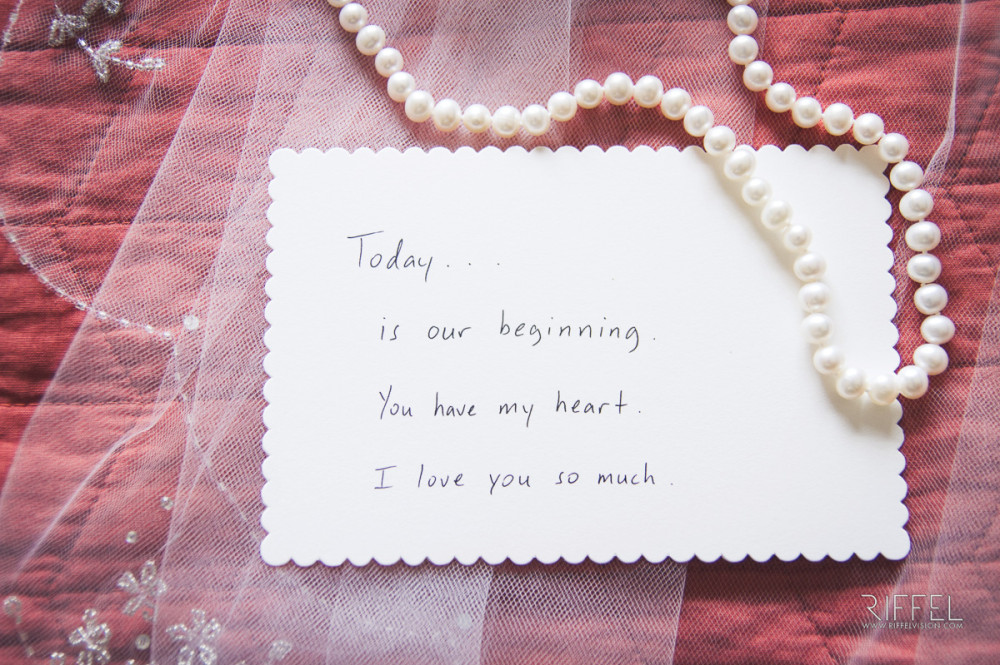 Today...
is our beginning.
You have my heart.
I love you so much.
RIFFEL
WWW.RIFFELVISION.COM